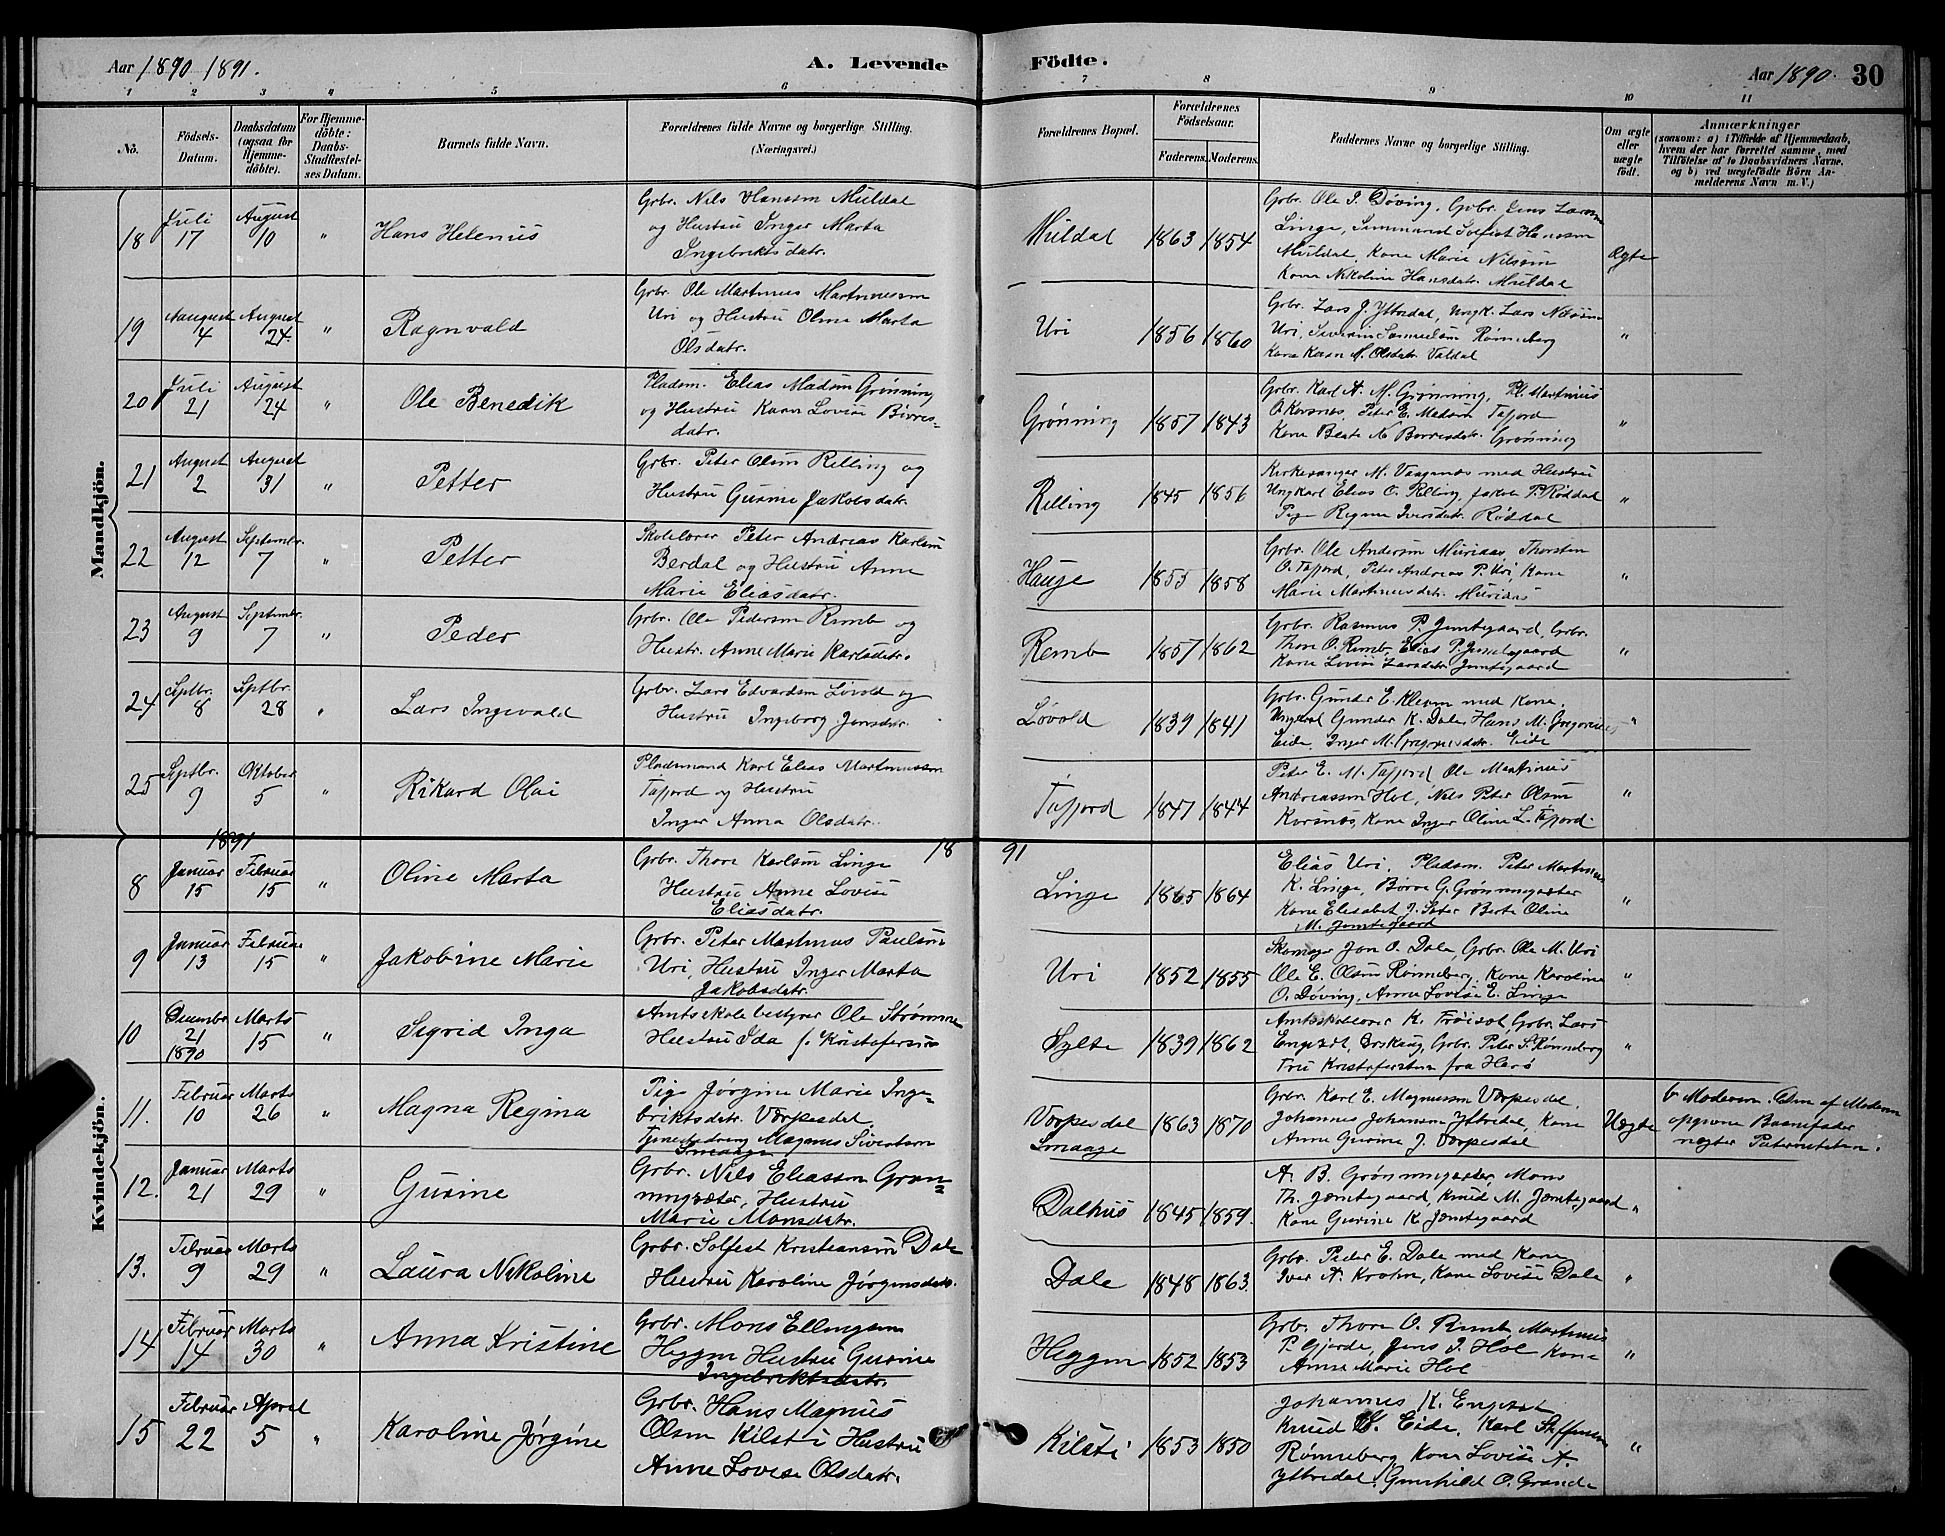 Aar 1890 1891.
A. Levende
Födte.
Aar 1890.
30
1 2 3 4 5 6
7 8 9 10 11
No.
Födsels-Datum.
Daabsdatum (ogsaa for Hjemme-döbte).
For Hjemme-döbte: Daabs-Stadfæstel-ses Datum.
Barnets fulde Navn.
Forældrenes fulde Navne og borgerlige Stilling.
(Næringsvei.)
Forældrenes Bopæl.
Forældrenes Födselsaar.
Faderens.
Moderens.
Faddernes Navne og borgerlige Stilling.
Om ægte eller uægte født.
Anmærkninger
(saasom: a) i Tilfælde af Hjemmedaab,
hvem der har forrettet samme, med
Tilföielse af to Daabsvidners Navne.
og b) ved uægtefödte Börn An-
melderens Navn m. V.)
Mandkjön.
18 Juli 17 August 10 " Hans Helenus
Gbr. Nils Hanssn Muldal
og Hustru Inger Marta
Ingebriktsdatr.
Muldal 1863 1854
Gbr. Ole J. Døving, Gbr. Jens Larssn
Linge, Solfest Hanssn
Muldal, Kone Marie Nilssn
Kone Nikoline Hansdatr. Muldal
Ægte
19 August 4 August 24. " Ragnvald
Gbr. Ole Martinus Martinussn
Uri og Hustru Oline Marta
Olsdatr.
Uri 1856 1860
Gbr. Lars J. Yttredal, Ungk. Lars
Uri, Severin Samuelsn Rønneberg
Kone Karn M. Olsdatr Valdal
"
20 Juli 21 August 24 " Ole Benedik
Pladsm. Elias Madsn Grønning
og Hustru Karn Lovise Børres-
datr.
Grønning 1857 1843
Gbr. Karl A. M. Grønning, Pl. Martinus
O Korsnes, Peter E. Madsn Tafjord
Kone Berte N. Børresdatr. Grønning
"
21 August 2 August 31 " Petter
Gbr. Peter Olsen Relling og
Hustru Gurine Jakobsdatr.
Relling 1845 1856
Kirkesanger M. med Hustru
Ungkarl Elias O. Relling, Jakob P. Røddal
Pige Regine Iversdatr. Røddal
"
22 August 12 Septembr. 7 " Petter
Skolelærer Peter Andreas Karlsn
Berdal og Hustru Anne
Marie Eliasdatr.
Hauge 1855 1858
Gbr. Ole Andersn Muriaas, Thorsten
O. Tafjord, Peter Andreas P. Uri Kone
Marie Martinusdatr. Muriaas
"
23 August 9 Septembr. 7 " Peder
Gbr. Ole Pedersen Remb og
Hustr. Anne Marie Karlsdatr.
Remb 1857 1862
Gbr. Rasmus P. Jemtegaard, Gbr.
Thore O. Remb, Elias P. Jemtegaard
Kone Lovise Larsdatr Jemtegaard
"
24 Septbr. 8 Septbr. 28 " Lars Ingevald
Gbr. Lars Edvardsn Løvold og
Hustru Ingeborg Jensdatr.
Løvold 1839 1841
Gbr. Gunder E Klevn med Kone.
Ungkarl Gunder K. Dale, Hans M.
Eide, Inger M. Eide
"
25 Septbr. 9 Oktober 5 " Rikard Olai
Pladsmand Karl Elias Martinussen
Tafjord og Hustru
Inger Anna Olsdatr.
Tafjord 1847 1844
Peter E. M. Tafjord Ole Martinus
Andreassen Hol, Nils Peter Olsen
Korsnes, Kone Inger Oline L. Tafjord.
"
1891
18 91
Kvindekjön.
8 Januar 15 Februar 15 " Oline Marta
Gbr. Thore Karlsen Linge
Hustru Anne Lovise
Eliasdatr.
Linge 1865 1864
Elias Uri, Pladsm. Peter Martinus
K. Linge, Børre G. Grønningsæter
Kone Elisabet J. Berte Oline
M. Jemtegaard
"
9 Januar 13 Februar 15 " Jakobine Marie
Gbr. Peter Martinus Paulsen
Uri, Hustru Inger Marta
Jakobsdatr.
Uri 1852 1855
Skomager Jon O. Dale, Gbr. Ole M. Uri
Ole E. Olsen Rønneberg, Kone Karoline
O. Døving, Anne Lovise E. Linge
"
10 Decembr 21 1890 Marts 15 " Sigrid Inga
Amtsskolebestyrer Ole Strømme
Hustru Ida f. Kristofersen
Sylte 1839 1862
Amtsskolelærer K. Gbr. Lars
Engeset, Gbr. Peter S. Rønneberg
Fru Kristofersen fra Herø
"
11. Februar 10 Marts 26 " Magna Regina
Pige Jørgine Marie Inge-
briktsdatr. Vorpesdal,
Tjenestedreng Magnus Sivertsen
Smaage
Vorpesdal
Smaage
1863 1870
Gbr. Karl E. Magnussen Vorpesdal,
Johannes Johansen Yttredal, Kone
Anne Gurine J. Vorpesdal
Uægte
b Moderen. Den af Moderen
opgivne Barnefader
nægter Paterniteten.
12. Januar 21 Marts 29 " Gurine
Gbr. Nils Eliassen Grøn-
ningsæter, Hustru
Marie Monsdatr.
Dalhus 1845 1859.
A. B. Grønningsæter, Mons
Th. Jemtegaard, Knud M. Jemtegaard
Kone Gurine K. Jemtegaard
"
13. Februar 9 Marts 29 " Laura Nikoline
Gbr. Solfest Kristiansen Dale
Hustru Karoline Jørgensdatr.
Dale 1848 1863.
Gbr. Peder E. Dale med Kone
Iver A. Krohn, Kone Lovise Dale
"
14 Februar 14 Marts 30 " Anna Kristine
Gbr. Mons Ellingsen
Heggen Hustru Gurine
Ingebriktsdatr.
Heggen 1852 1853
Gbr. Thore O. Remb Martinus
P. Gjerde, Jens I. Hol Kone
Anne Marie Hol
"
15 Februar 22 April 5 " Karoline Jørgine
Gbr. Hans Magnus
Olsen Kilsti Hustru
Anne Lovise Olsdatr.
Kilsti 1853 1850
Johannes K. Engeset
Knud Eide, Karl Steffensen
Rønneberg, Kone Lovise A.
Yttredal, Gunhild O. Grande
"